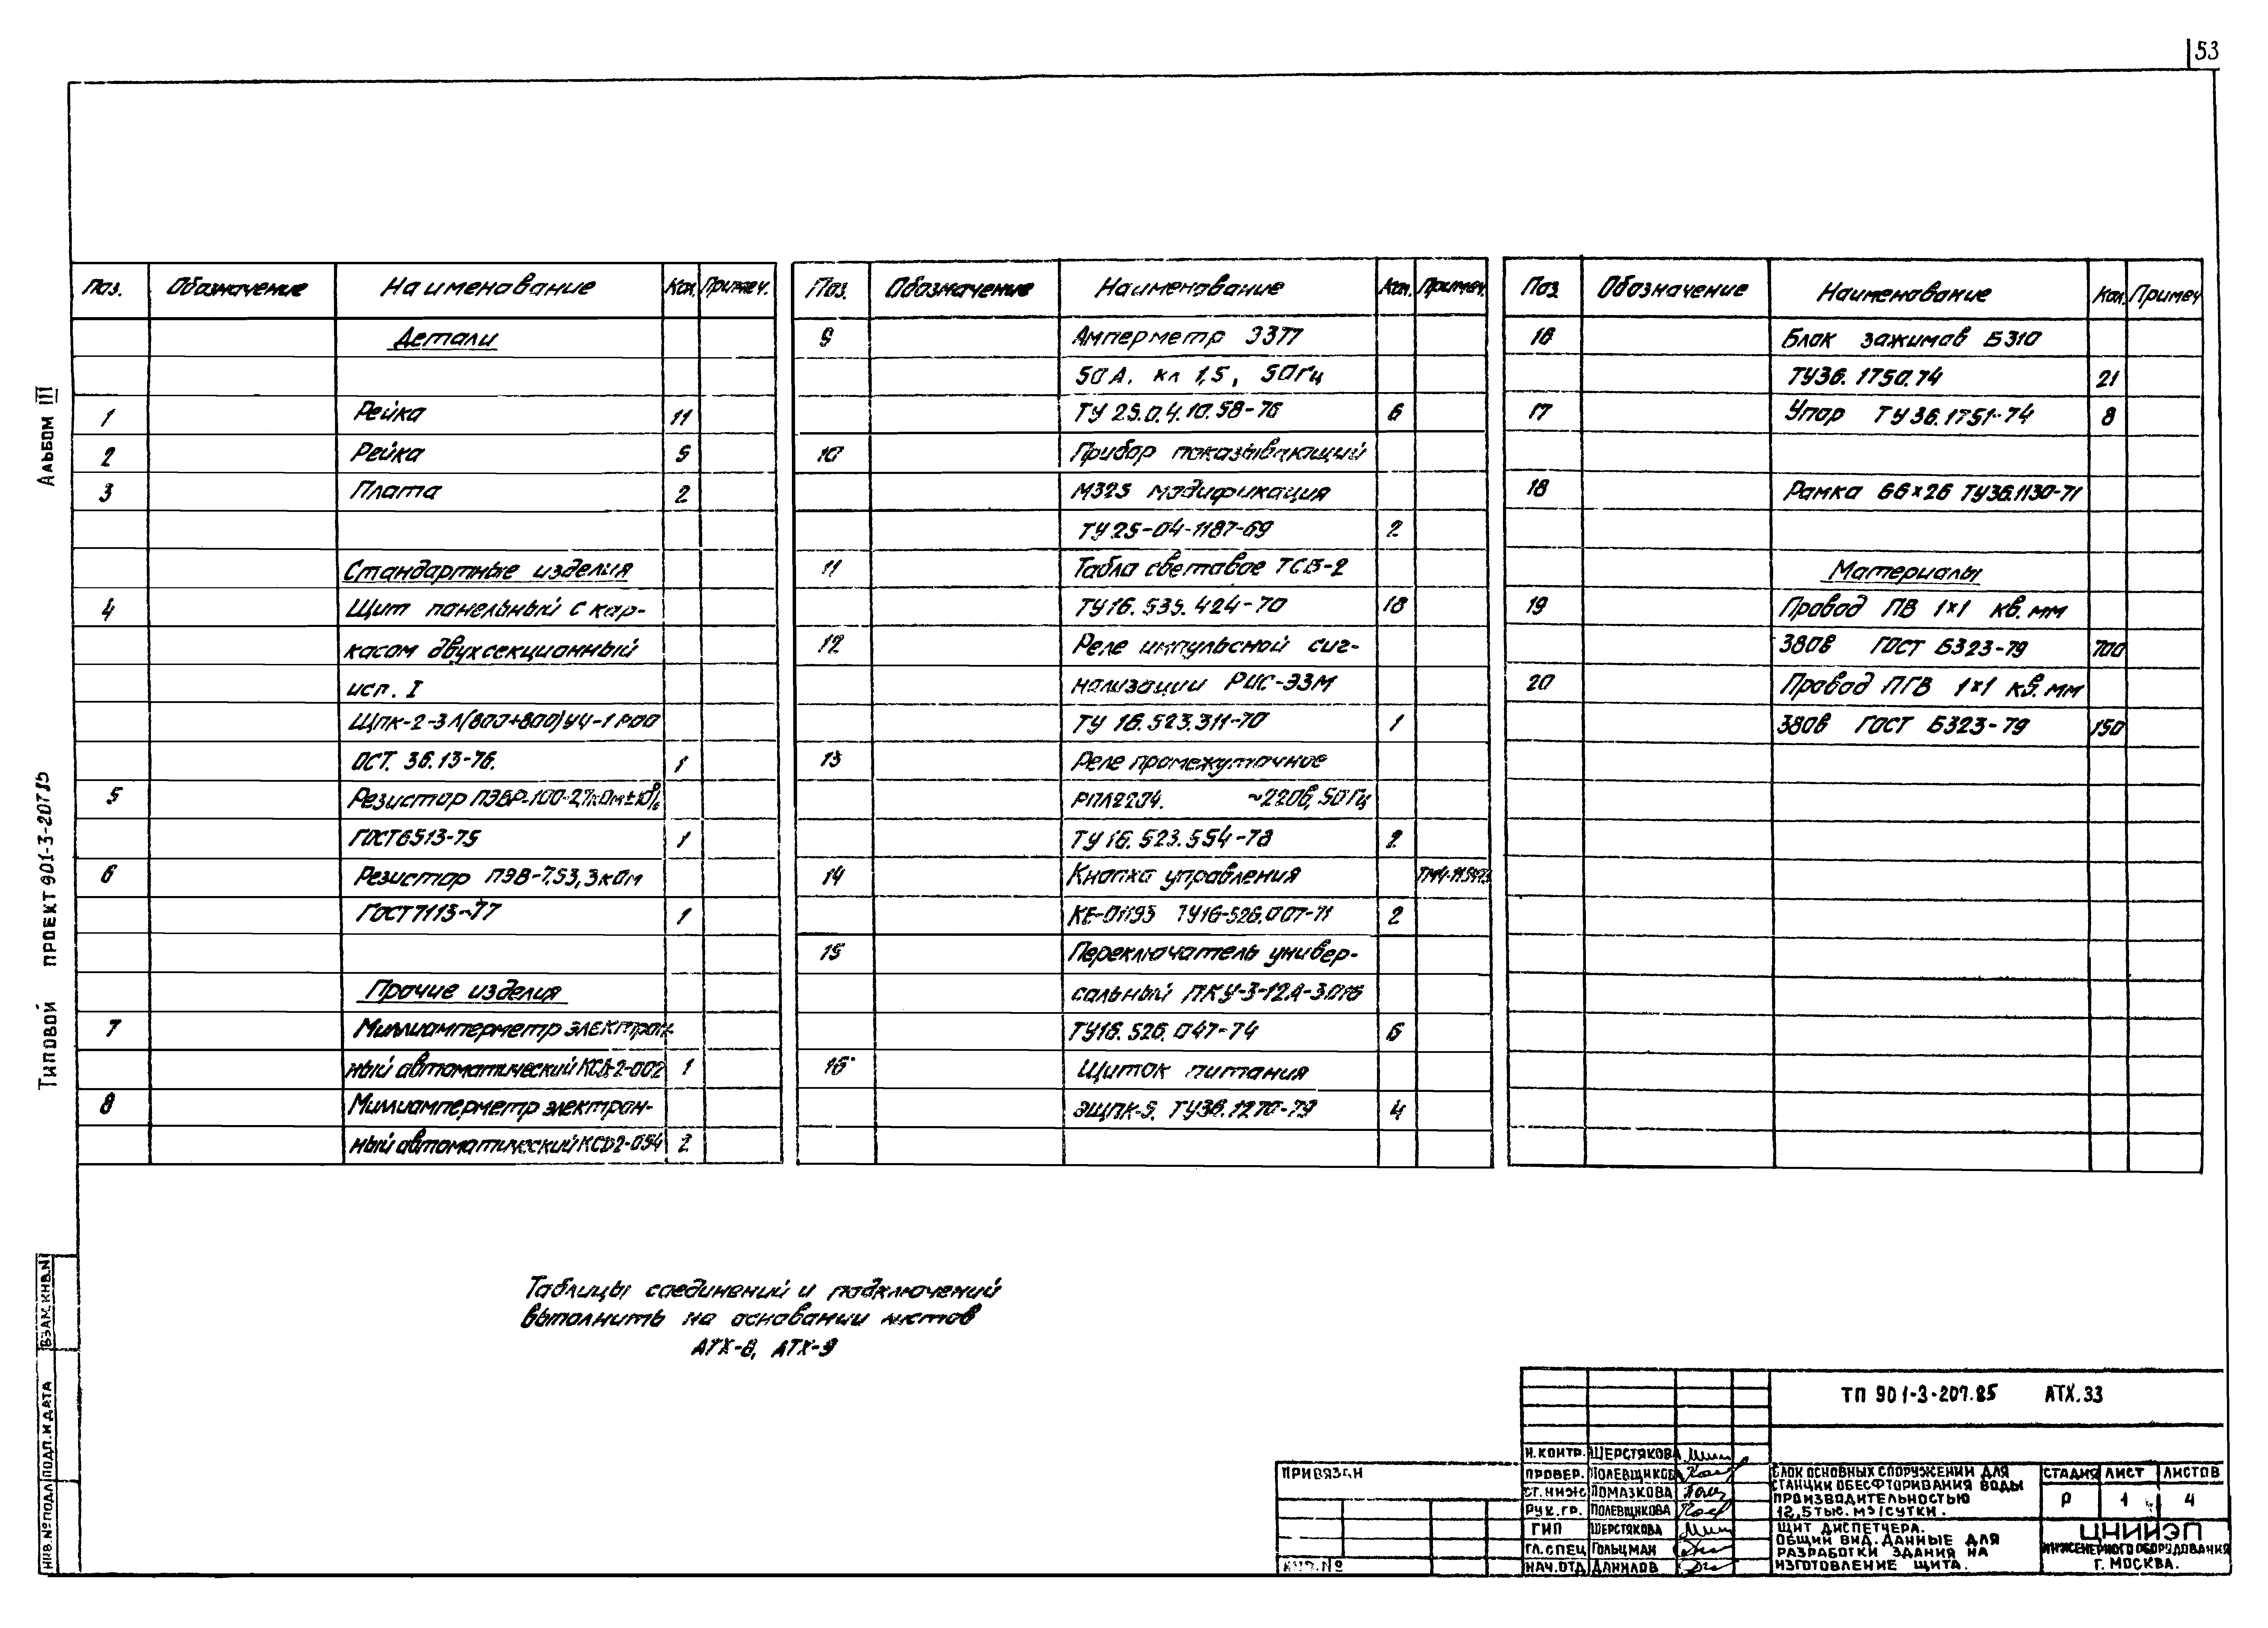 53
Альбом III
Типовой проект 901-3-207.85
Поз. Обозначение Наименование Кол. Примеч.
Детали
1 Рейка 11
2 Рейка 5
3 Плата 2
Стандартные изделия
4 Щит панельный с кар-
касом двухсекционный
исп. I
ЩПК-2-ЗЛ(800+800)У4-1Р00
ОСТ. 36.13-76. 1
5 Резистор ПЭВР-100-2,7кОм±10%
ГОСТ6513-75 1
6 Резистор ПЭВ-7,5 3,3кОм
ГОСТ7113-77 1
Прочие изделия
7 Миллиамперметр электрон-
ный автоматический КСД2-002 1
8 Миллиамперметр электрон-
ный автоматический КСД2-054 2
Поз. Обозначение Наименование Кол. Примеч.
9 Амперметр Э377
50А. кл 1,5, 50Гц
ТУ 25.04.10.58-76 6
10 Прибор показывающий
М325 модификация
ТУ25-04-1187-69 2
11 Табло световое ТСБ-2
ТУ16.535.424-70 18
12 Реле импульсной сиг-
нализации РИС-ЭЗМ
ТУ 16.523.311-70 1
13 Реле промежуточное
РПЛ2204. ~220в, 50Гц
ТУ16.523.554-78 2
14 Кнопка управления
КЕ-01193 ТУ16-526.007-71 2
15 Переключатель универ-
сальный ПКУ-3-12А-3016
ТУ16.526.047-74 6
16 Щиток питания
ЭЩПК-5. ТУ36.1270-79 4
Поз Обозначение Наименование Кол. Примеч
16 Блок зажимов Б310
ТУ36.1750.74 21
17 Упор ТУ36.1751-74 8
18 Рамка 66×26 ТУ36.1130-71
Материалы
19 Провод ПВ 1×1 кв.мм
380в ГОСТ 6323-79 700
20 Провод ПГВ 1×1 кв.мм
380в ГОСТ 6323-79 150
Таблицы соединений и подключений
выполнить на основании листов
АТХ-8, АТХ-9
ВЗАМ.ИНВ.N
ПОДП.И ДАТА
ИНВ.№ ПОДЛ
ТП 901-3-207.85 АТХ.33
ПРИВЯЗАН
ИНВ.№
Н.КОНТР. ШЕРСТЯКОВА
ПРОВЕР. ПОЛЕВЩИКОВА
СТ.ИНЖ ПОМАЗКОВА
РУК.ГР. ПОЛЕВЩИКОВА
ГИП ШЕРСТЯКОВА
ГЛ.СПЕЦ ГОЛЬЦМАН
НАЧ.ОТД ДАНИЛОВ
БЛОК ОСНОВНЫХ СООРУЖЕНИЙ ДЛЯ
СТАНЦИИ ОБЕСФТОРИВАНИЯ ВОДЫ
ПРОИЗВОДИТЕЛЬНОСТЬЮ
12,5 ТЫС. М3/СУТКИ.
ЩИТ ДИСПЕТЧЕРА.
ОБЩИЙ ВИД. ДАННЫЕ ДЛЯ
РАЗРАБОТКИ ЗДАНИЯ НА
ИЗГОТОВЛЕНИЕ ЩИТА.
СТАДИЯ ЛИСТ ЛИСТОВ
Р 1 4
ЦНИИЭП
ИНЖЕНЕРНОГО ОБОРУДОВАНИЯ
Г. МОСКВА.